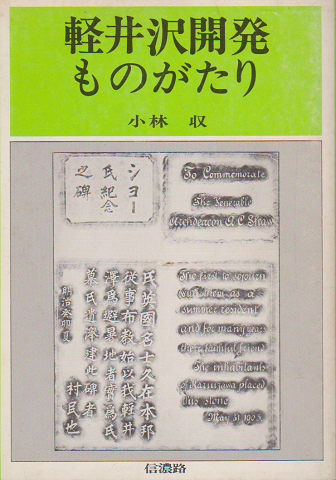 軽井沢開発
ものがたり
小林 収
シヨー
氏紀念
之碑
To Commemorate
The Venerable
Archdeacon A C Shaw
氏英國名士久在本邦
從事布教始以我輕井
澤為避暑地者為氏
慕氏遺澤建此碑者
村民也
明治癸卯夏
The first to sojourn
as a
summer resident
and for many years
their faithful friend
The inhabitants
of Karuizawa placed
this stone
May 31 1903.
信濃路